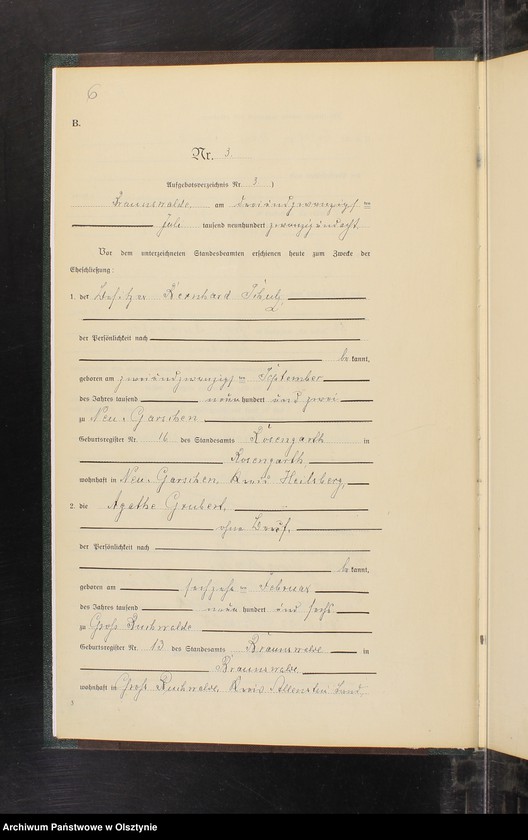 6
B.
Nr. 3.
Aufgebotsverzeichnis Nr. 3. )
Braunswalde, am dreiundzwanzigsten
Juli tausend neunhundert zwanzig und acht.
Vor dem unterzeichneten Standesbeamten erschienen heute zum Zwecke der
Eheschließung:
1. der Besitzer Bernhard Schulz
der Persönlichkeit nach
be kannt,
geboren am zweiundzwanzigsten September
des Jahres tausend neun hundert und zwei
zu Neu-Garschen
Geburtsregister Nr. 16 des Standesamts Rosengarth in
Rosengarth,
wohnhaft in Neu-Garschen Kreis Heilsberg,
2. die Agathe Grubert,
ohne Beruf,
der Persönlichkeit nach
be kannt,
geboren am sechzehnten Februar
des Jahres tausend neun hundert und sechs
zu Groß Buchwalde
Geburtsregister Nr. 13 des Standesamts Braunswalde in
Braunswalde,
wohnhaft in Groß Buchwalde, Kreis Allenstein Land,
3
Archiwum Państwowe w Olsztynie